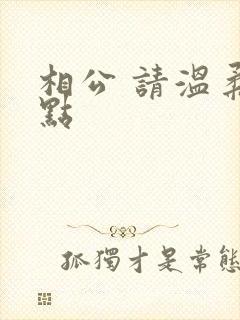 相公 請溫柔
點
孤獨才是常態